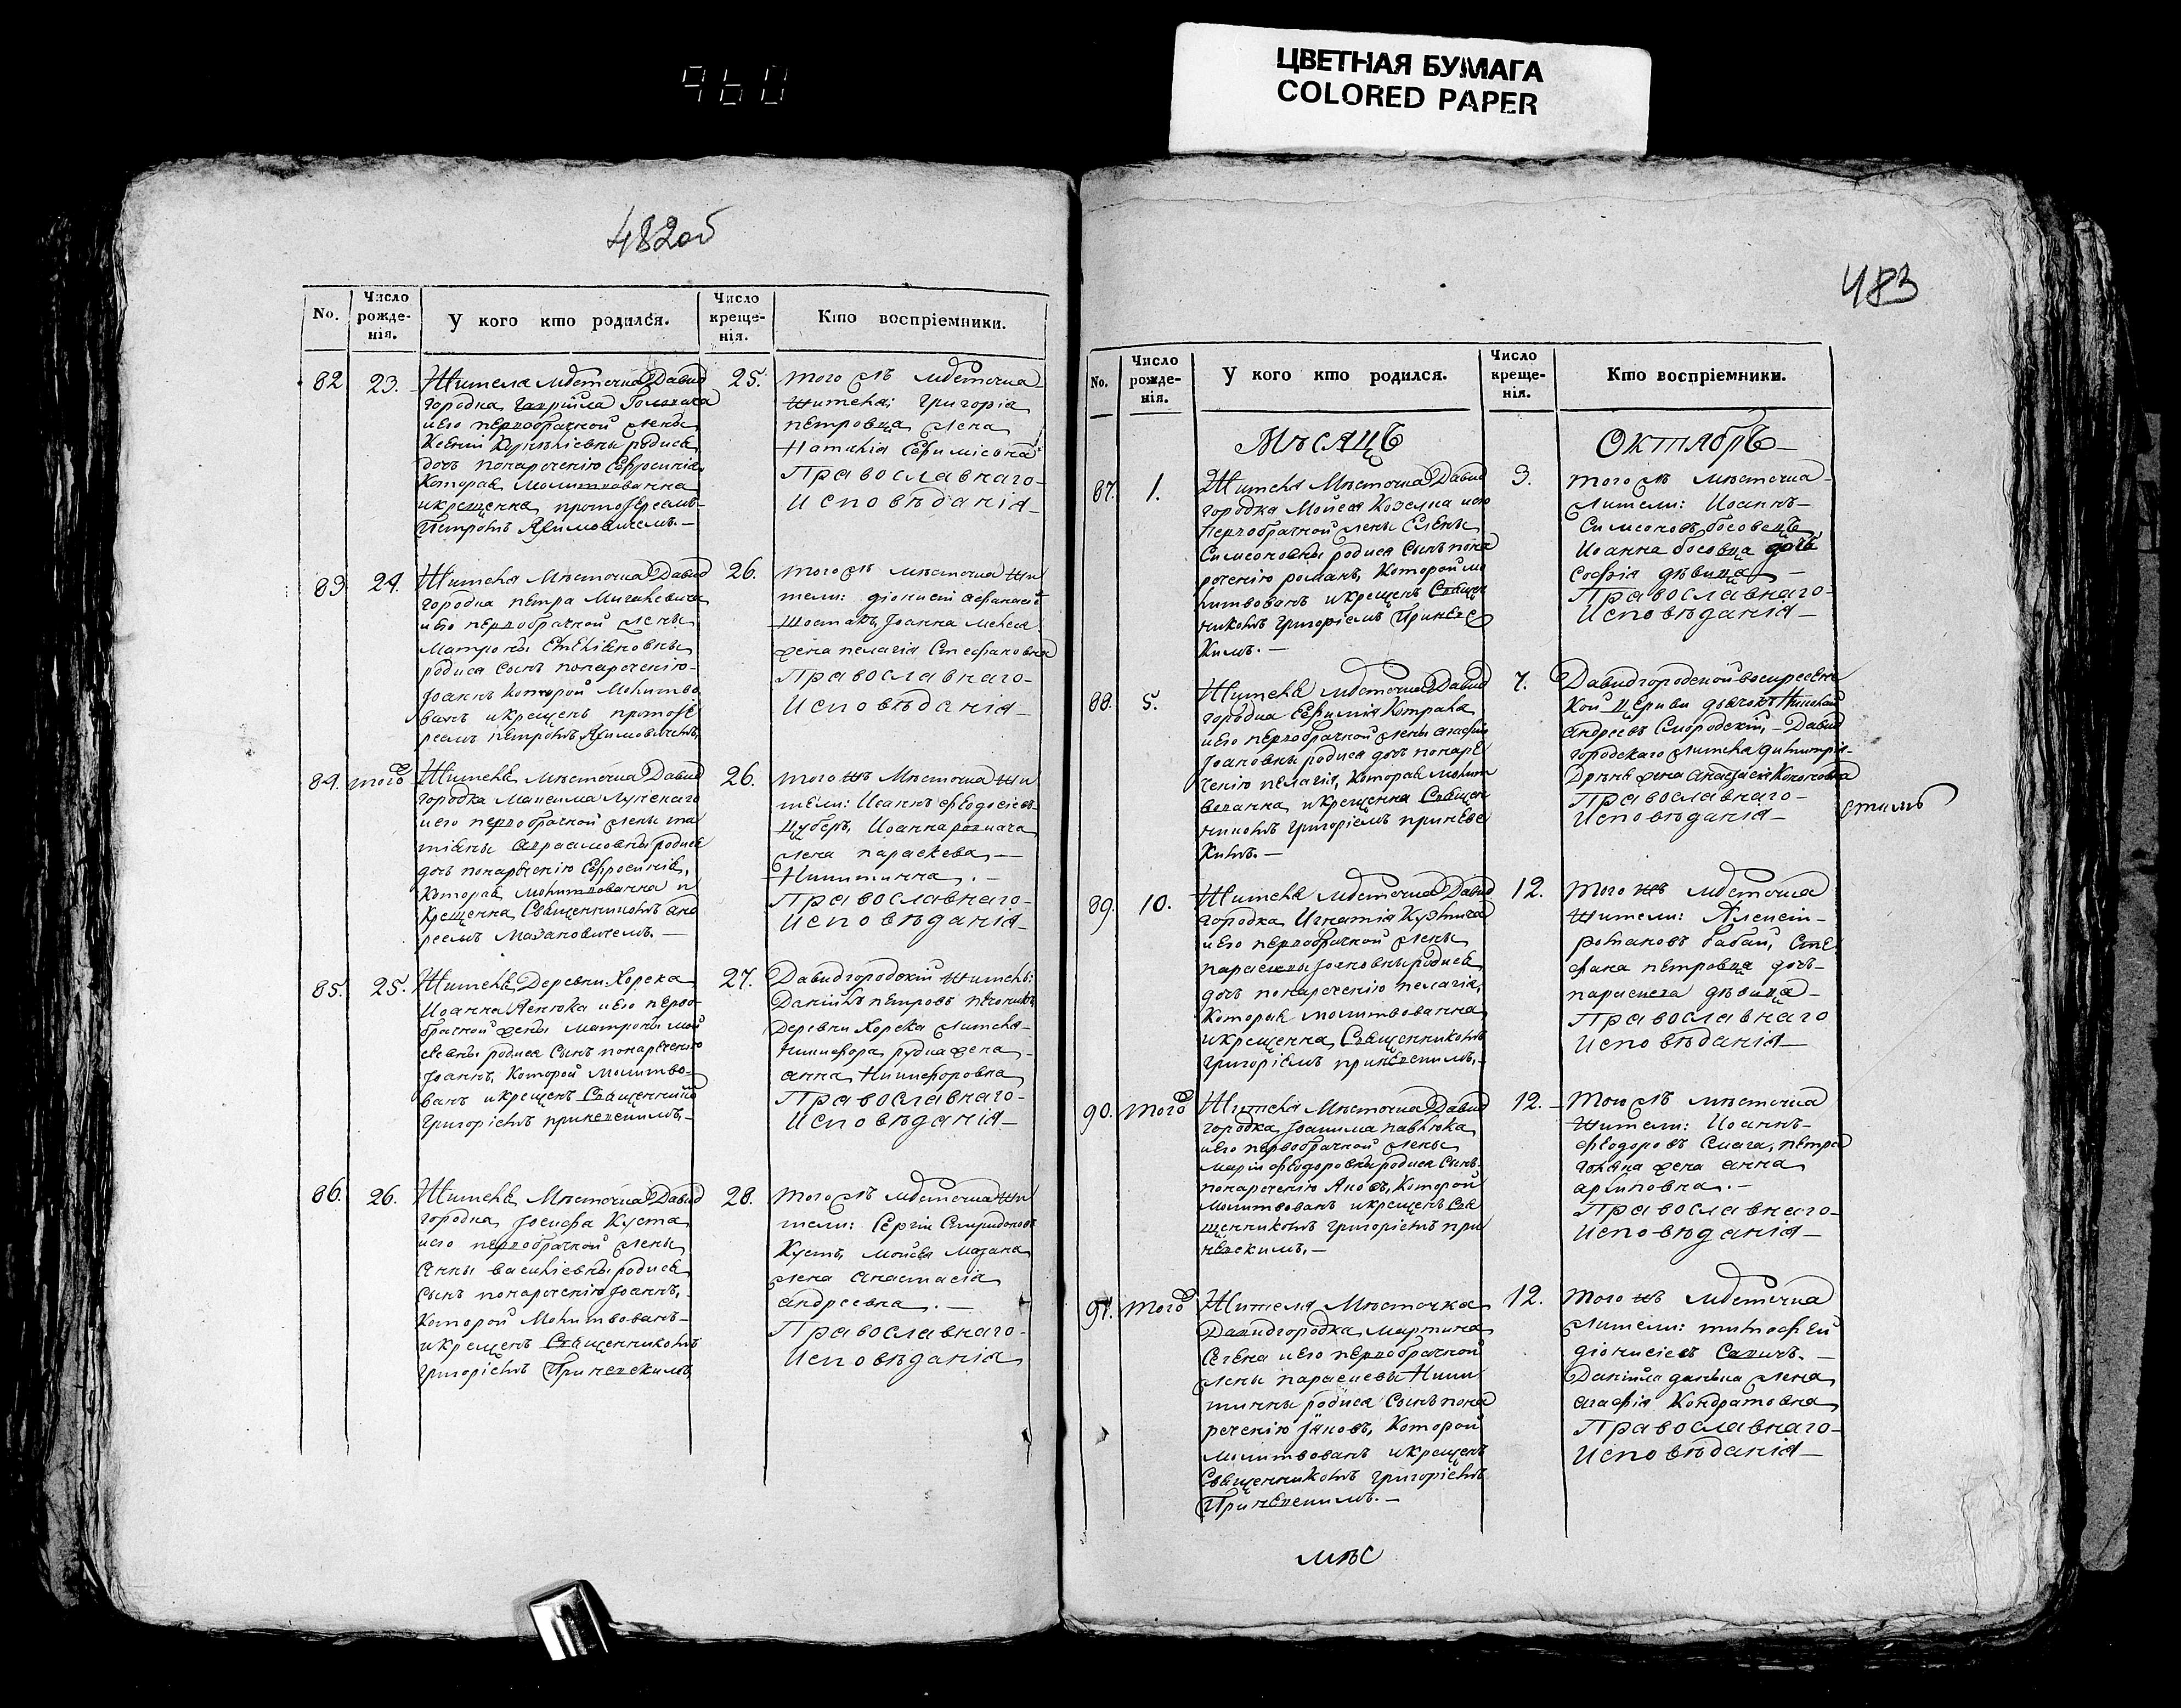 960
ЦВЕТНАЯ БУМАГА
COLORED PAPER
482об
No.
Число рожде-нія.
У кого кто родился.
Число креще-нія.
Кто воспріемники.
82
23.
Жителя мѣсточка Давид
городка Гаврійла
и его первобрачной жены
Ксеніи родися
дочь понареченію Єфросинія,
Которая молитвованна
и крещенна протоіереамъ
Петромъ Якимовичемъ.—
25.
того жъ мѣсточка
жителя: Григорія
петровца жена
Наталія Єфиміевна
Православнаго-
Исповѣданія-
83
24.
Жителя Мѣсточка Давид
городка петра
и его первобрачной жены
матроны
родися сынъ понареченію-
Іоаннъ Которой Молитво
ванъ и крещенъ протоіе
реемъ петромъ Якимовичемъ,
26.
того жъ мѣсточка жи
тели: діонисій афанасіе
Шостакъ, Іоанна
жена пелагія Стефановна
Православнаго-
Исповѣданія-
84.
того
Жителя мѣсточка Давид
городка Максима Лунскаго
и его первобрачной жены та
тіяны авраамовны родися
дочь понареченію Єфросинія,
Которая молитвованна и
Крещенна Священникомъ анд
реемъ Мазановичемъ.—
26.
того жъ Мѣсточка жи
тели: Иоаннъ феодосіевъ
Цуберъ, Иоанна
жена параскева,—
Никитична.—
Православнаго-
Исповѣданія-
85.
25.
Жителя Деревни Хорска
Иоанна и его перво-
брачной жены матроны мои
сеевны родися Сынъ понареченію
Іоаннъ, Которой молитво-
ванъ и крещенъ Священнико
Григоріемъ приневскимъ,-
27.
Давидгородскій Житель:
Даніилъ петровъ
Деревни Хорска жителя-
Никифора рудка жена-
анна Никифоровна
Православнаго-
Исповѣданія-
86.
26.
Жителя Мѣсточка Давид
городка Іосифа Куста
и его первобрачной жены
Анны василіевны родися
Сынъ понареченію Іоаннъ,
Которой Молитвованъ-
и крещенъ Священникомъ
Григоріемъ Приневскимъ,
28.
того жъ мѣсточка жи
тели: Сергій Спиридоновъ
Кустъ, мойсея Мазана
жена анастасія
андреевна.—
Православнаго-
Исповѣданія
483
No.
Число рожде-нія.
У кого кто родился.
Число креще-нія.
Кто воспріемники.
Мѣсяцъ
Октябрь-
87.
1.
Жителя Мѣсточка Давид
городка Мойсея Козелка и его
Первобрачной жены Єлены
Симеоновны родися Сынъ пона
реченію романъ, Которой мо
литвованъ и крещенъ Священ
никомъ Григоріемъ Приневс
Кимъ.—
3.
того жъ мѣсточка-
жители: Иоаннъ-
Симеоновъ босовецъ,
Иоанна босовца дочь
Софія дѣвица-
Православнаго-
Исповѣданія-
88.
5.
Жителя мѣсточка Давид
городка Єфимія
и его первобрачной жены агафіи
Іоанновны родися дочь понаре
ченію пелагія, Которая молит
вованна, и крещенна Священ
никомъ Григоріемъ приневс
Кимъ.—
7.
Давидгородской воскресенс
Кой Церкви дьячокъ Николай
андреевъ Смородскій, Давид
городскаго жителя димитрія-
жена анастасія Кононовна
Православнаго-
Исповѣданія-
89.
10.
Жителя мѣсточка Давид
городка Игнатія Кузмича
и его первобрачной жены
параскевы Іоанновны родися
дочь понареченію пелагія,
Которая молитвованна
и крещенна Священникомъ
Григоріемъ приневскимъ,-
12.
того жъ мѣсточка
жители: Алексій-
романовъ бабай, Сте
фана петровца дочь-
параскева дѣвица-
Православнаго
Исповѣданія-
90.
того
Жителя Мѣсточка Давид
городка Іоакима павлюка
и его первобрачной жены
маріи феодоровны родися Сынъ
понареченію Яковъ, Которой
молитвованъ и крещенъ Свя
щенникомъ Григоріемъ при
невскимъ,-
12.
Того жъ мѣсточка
жители: Иоаннъ-
феодоровъ Смага, петра
жена анна
-
Православнаго-
Исповѣданія-
91.
того
Жителя Мѣсточка
Давидгородка Мартина
и его первобрачной
жены параскевы Ники
тичны родися Сынъ пона
реченію Іаковъ, Которой
молитвованъ и крещенъ
Священникомъ Григоріемъ
Приневскимъ.—
12.
того жъ мѣсточка
жители: тимофей
діонисіевъ Савичъ.—
Даніила жена
агафія Кондратовна
Православнаго-
Исповѣданія-
мѣс